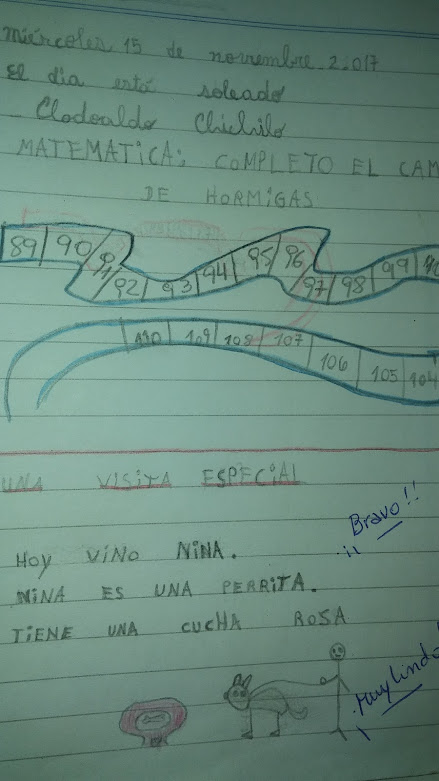 miércoles 15 de noviembre 2.017
El dia está soleado
Clodoaldo Chichilo
MATEMATICA: COMPLETO EL CAM
DE HORMIGAS
89 90 91 92 93 94 95 96 97 98 99
110 109 108 107 106 105 104
UNA VISITA ESPECIAL
¡¡ Bravo!!
HOY VINO NINA.
NINA ES UNA PERRITA.
TIENE UNA CUCHA ROSA
¡Muy lindo!